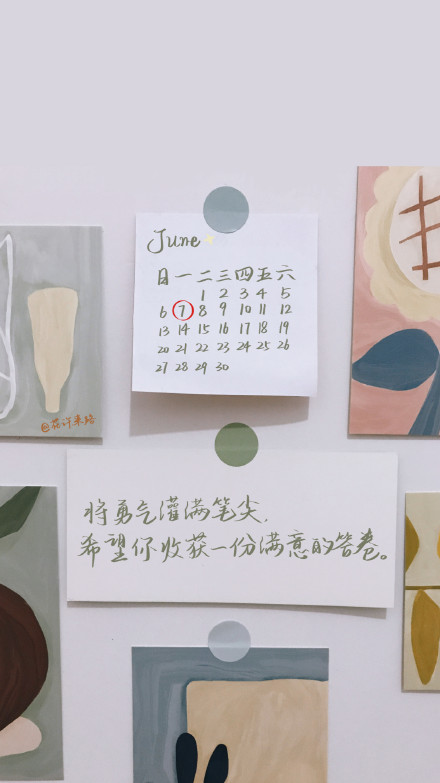 June
日 一 二 三 四 五 六
1 2 3 4 5
6 7 8 9 10 11 12
13 14 15 16 17 18 19
20 21 22 23 24 25 26
27 28 29 30
将勇气灌满笔尖，
希望你收获一份满意的答卷。